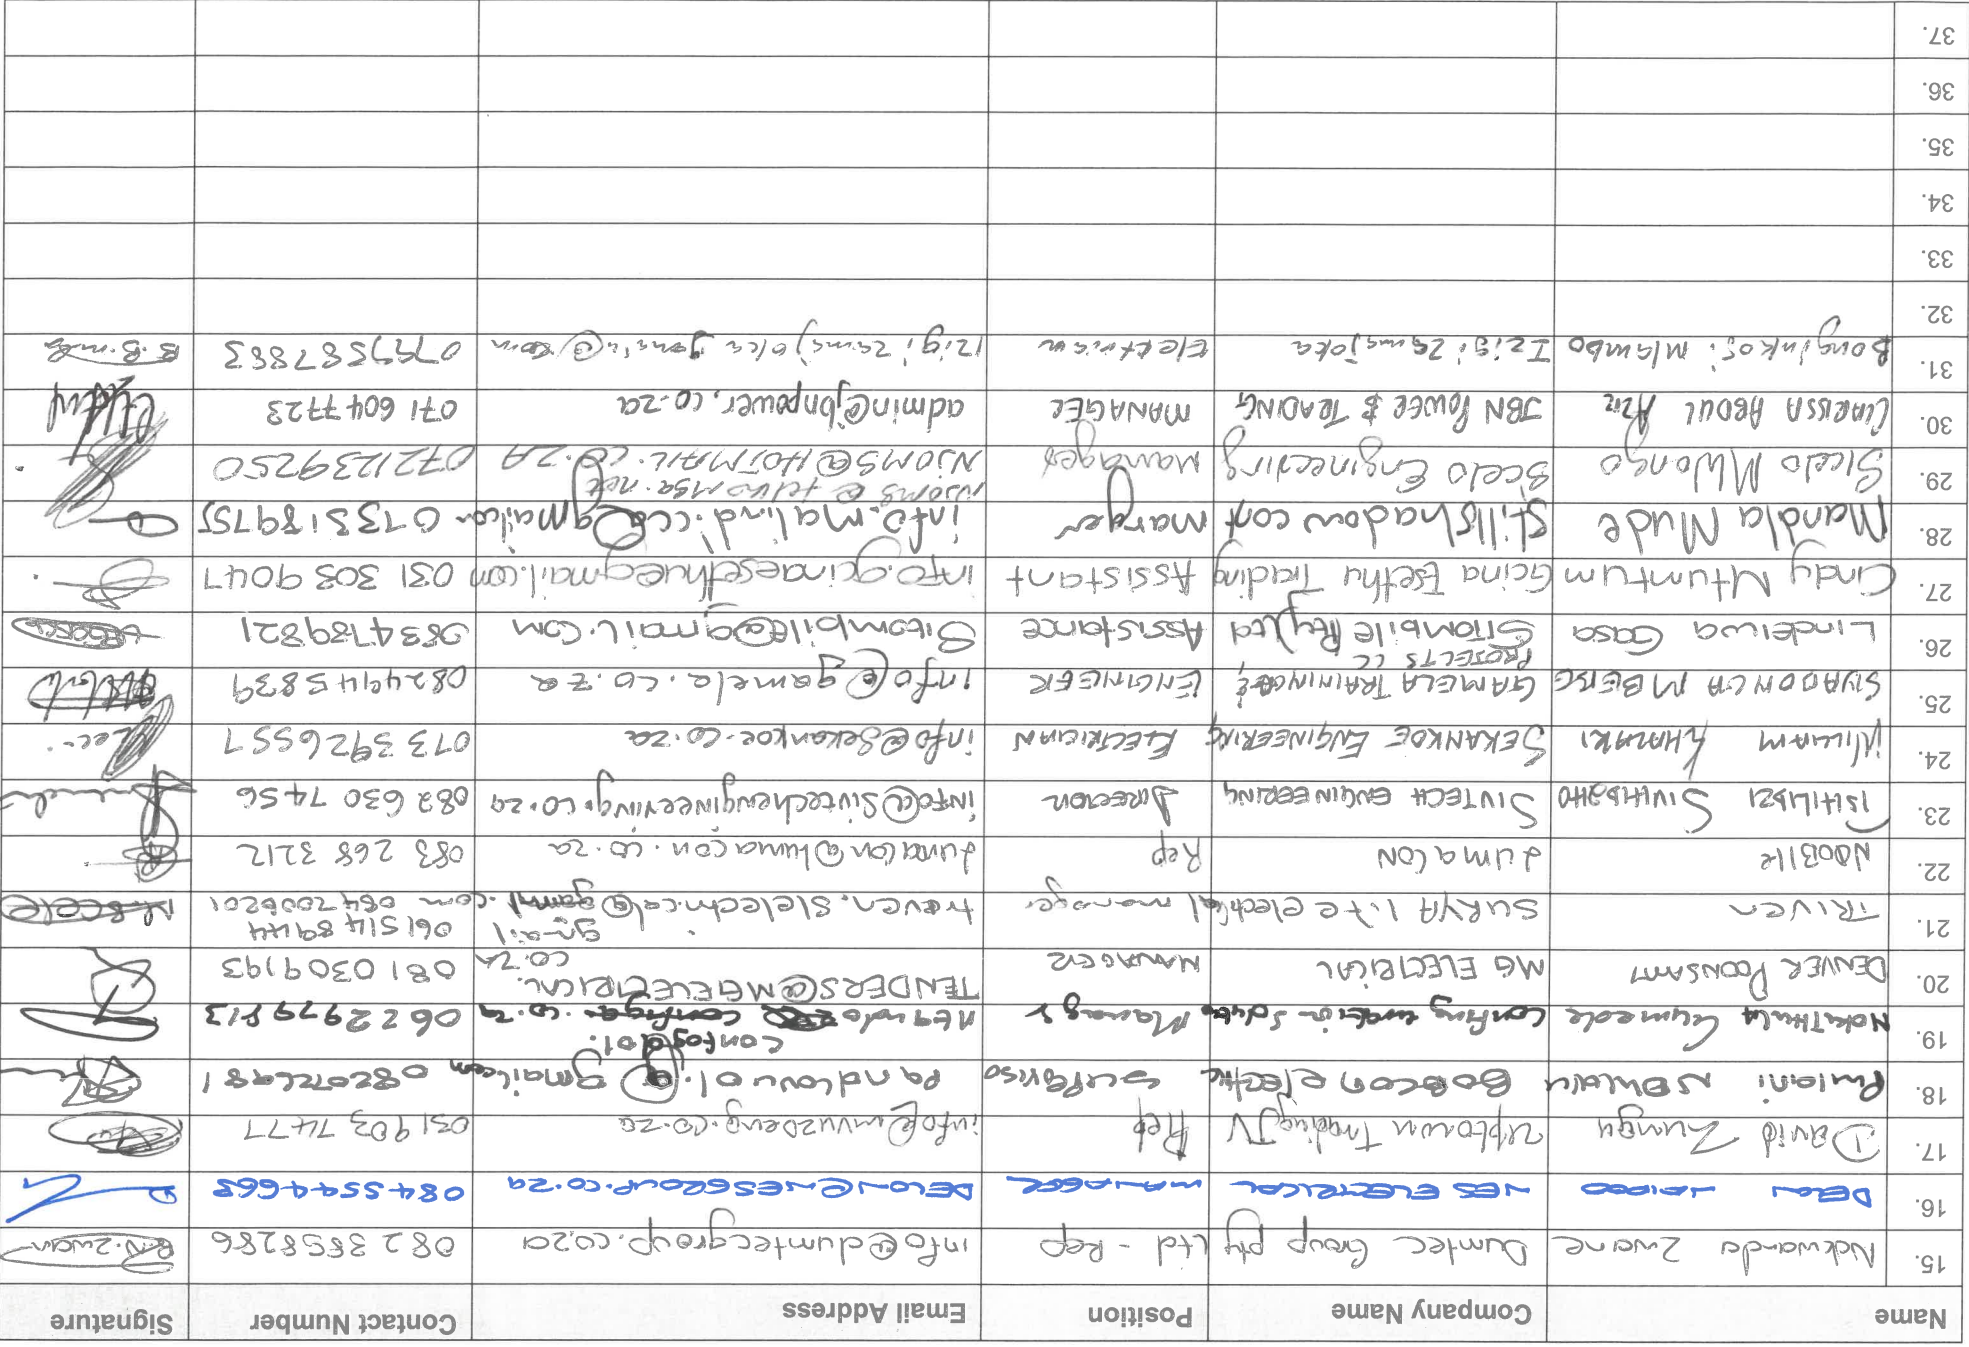 Name Company Name Position Email Address Contact Number Signature
15. Nokwanda Zwane Dumtec Group pty Ltd - Rep info@dumtecgroup.co.za 082 3858286
16. DELON NES ELECTRICAL MANAGER DELON@NESGROUP.CO.ZA 0845594668
17. David Zungu Uptown Trading JV Rep info@mvuzoeng.co.za 031 903 7477
18. NDLOVU BOBCON electric Pandlovu01.@gmail.com 0820726981
19. Manager 0622979813
20. DENVER POONSAMY MG ELECTRICAL MANAGER TENDERS@MGELECTRICAL. CO.ZA 081 0309193
21. TRIVEN SURYA manager gmail .com 061514 8944 084 2006201
22. NDOBILE LUMACON Rep Lumacon@lumacon.co.za 083 268 3212
23. SIVTECH ENGINEERING DIRECTOR info@Sivtechengineering.co.za 082 630 7456
24. WILLIAM KHAZAKI SEKANKOE ENGINEERING ELECTRICIAN info@Sekankoe.co.za 073 3926557
25. GAMELA TRAINING & PROJECTS CC ENGINEER info@gamela.co.za 0824945839
26. Lindelwa Gasa SITOMBILE Pty Ltd Assistance Sitombile@gmail.com 0834789821
27. Cindy Mtumtum Gcina Esethu Trading Assistant info.gcinaesethu@gmail.com 031 303 9047
28. Mandla Mude Stillshadow cont manger info.malindi.cc@gmail.com 0733189755
29. Scelo Mlongo Scelo Engineering Manager NJOMS@HOTMAIL.CO.ZA 0721239250
30. CLARISSA ABDUL AZIZ JBN POWER & TRADING MANAGER admin@jbnpower.co.za 071 604 7723
31. Bonginkosi mlambo Izigi zamajoka Electrician 0799587883
32.
33.
34.
35.
36.
37.